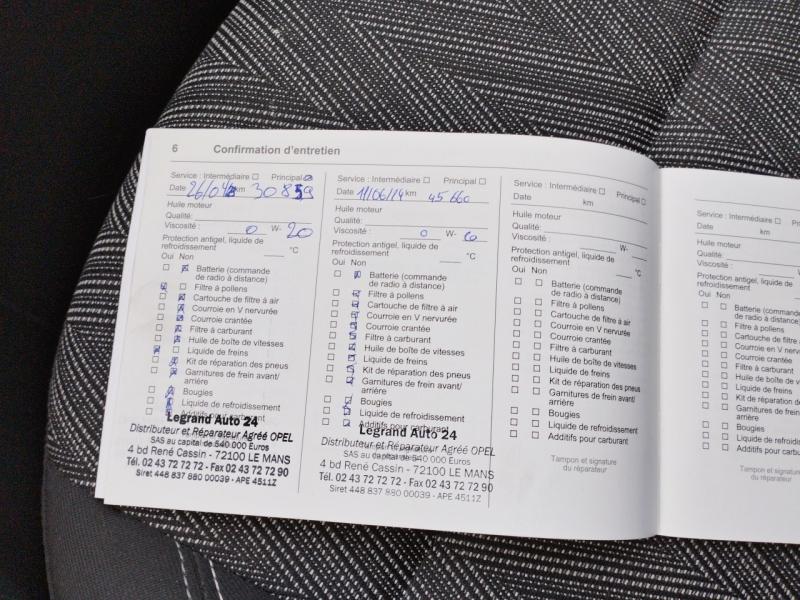 6 Confirmation d'entretien
Service : Intermédiaire Principal
Date 26/04 km 30859
Huile moteur
Qualité:
Viscosité : 0 W- 20
Protection antigel, liquide de
refroidissement °C
Oui Non
Batterie (commande
de radio à distance)
Filtre à pollens
Cartouche de filtre à air
Courroie en V nervurée
Courroie crantée
Filtre à carburant
Huile de boîte de vitesses
Liquide de freins
Kit de réparation des pneus
Garnitures de frein avant/
arrière
Bougies
Liquide de refroidissement
Additifs pour carburant
Legrand Auto 24
Distributeur et Réparateur Agréé OPEL
SAS au capital de 540 000 Euros
4 bd René Cassin - 72100 LE MANS
Tél. 02 43 72 72 72 - Fax 02 43 72 72 90
Siret 448 837 880 00039 - APE 4511Z
Service : Intermédiaire Principal
Date 11/06/14 km 45 660
Huile moteur
Qualité:
Viscosité : 0 W-
Protection antigel, liquide de
refroidissement °C
Oui Non
Batterie (commande
de radio à distance)
Filtre à pollens
Cartouche de filtre à air
Courroie en V nervurée
Courroie crantée
Filtre à carburant
Huile de boîte de vitesses
Liquide de freins
Kit de réparation des pneus
Garnitures de frein avant/
arrière
Bougies
Liquide de refroidissement
Additifs pour carburant
Legrand Auto 24
Distributeur et Réparateur Agréé OPEL
SAS au capital de 540 000 Euros
4 bd René Cassin - 72100 LE MANS
Tél. 02 43 72 72 72 - Fax 02 43 72 72 90
Siret 448 837 880 00039 - APE 4511Z
Service : Intermédiaire Principal
Date km
Huile moteur
Qualité:
Viscosité : W-
Protection antigel, liquide de
refroidissement °C
Oui Non
Batterie (commande
de radio à distance)
Filtre à pollens
Cartouche de filtre à air
Courroie en V nervurée
Courroie crantée
Filtre à carburant
Huile de boîte de vitesses
Liquide de freins
Kit de réparation des pneus
Garnitures de frein avant/
arrière
Bougies
Liquide de refroidissement
Additifs pour carburant
Tampon et signature
du réparateur
Service : Intermédiaire
Date km
Huile moteur
Qualité:
Viscosité :
Protection antigel, liquide
refroidissement
Oui Non
Batterie (command
de radio à distance
Filtre à pollens
Cartouche de filtre
Courroie en V nerv
Courroie crantée
Filtre à carburant
Huile de boîte de v
Liquide de freins
Kit de réparation d
Garnitures de frein
arrière
Bougies
Liquide de refroidi
Additifs pour carbu
Tampon et signatu
du réparateur